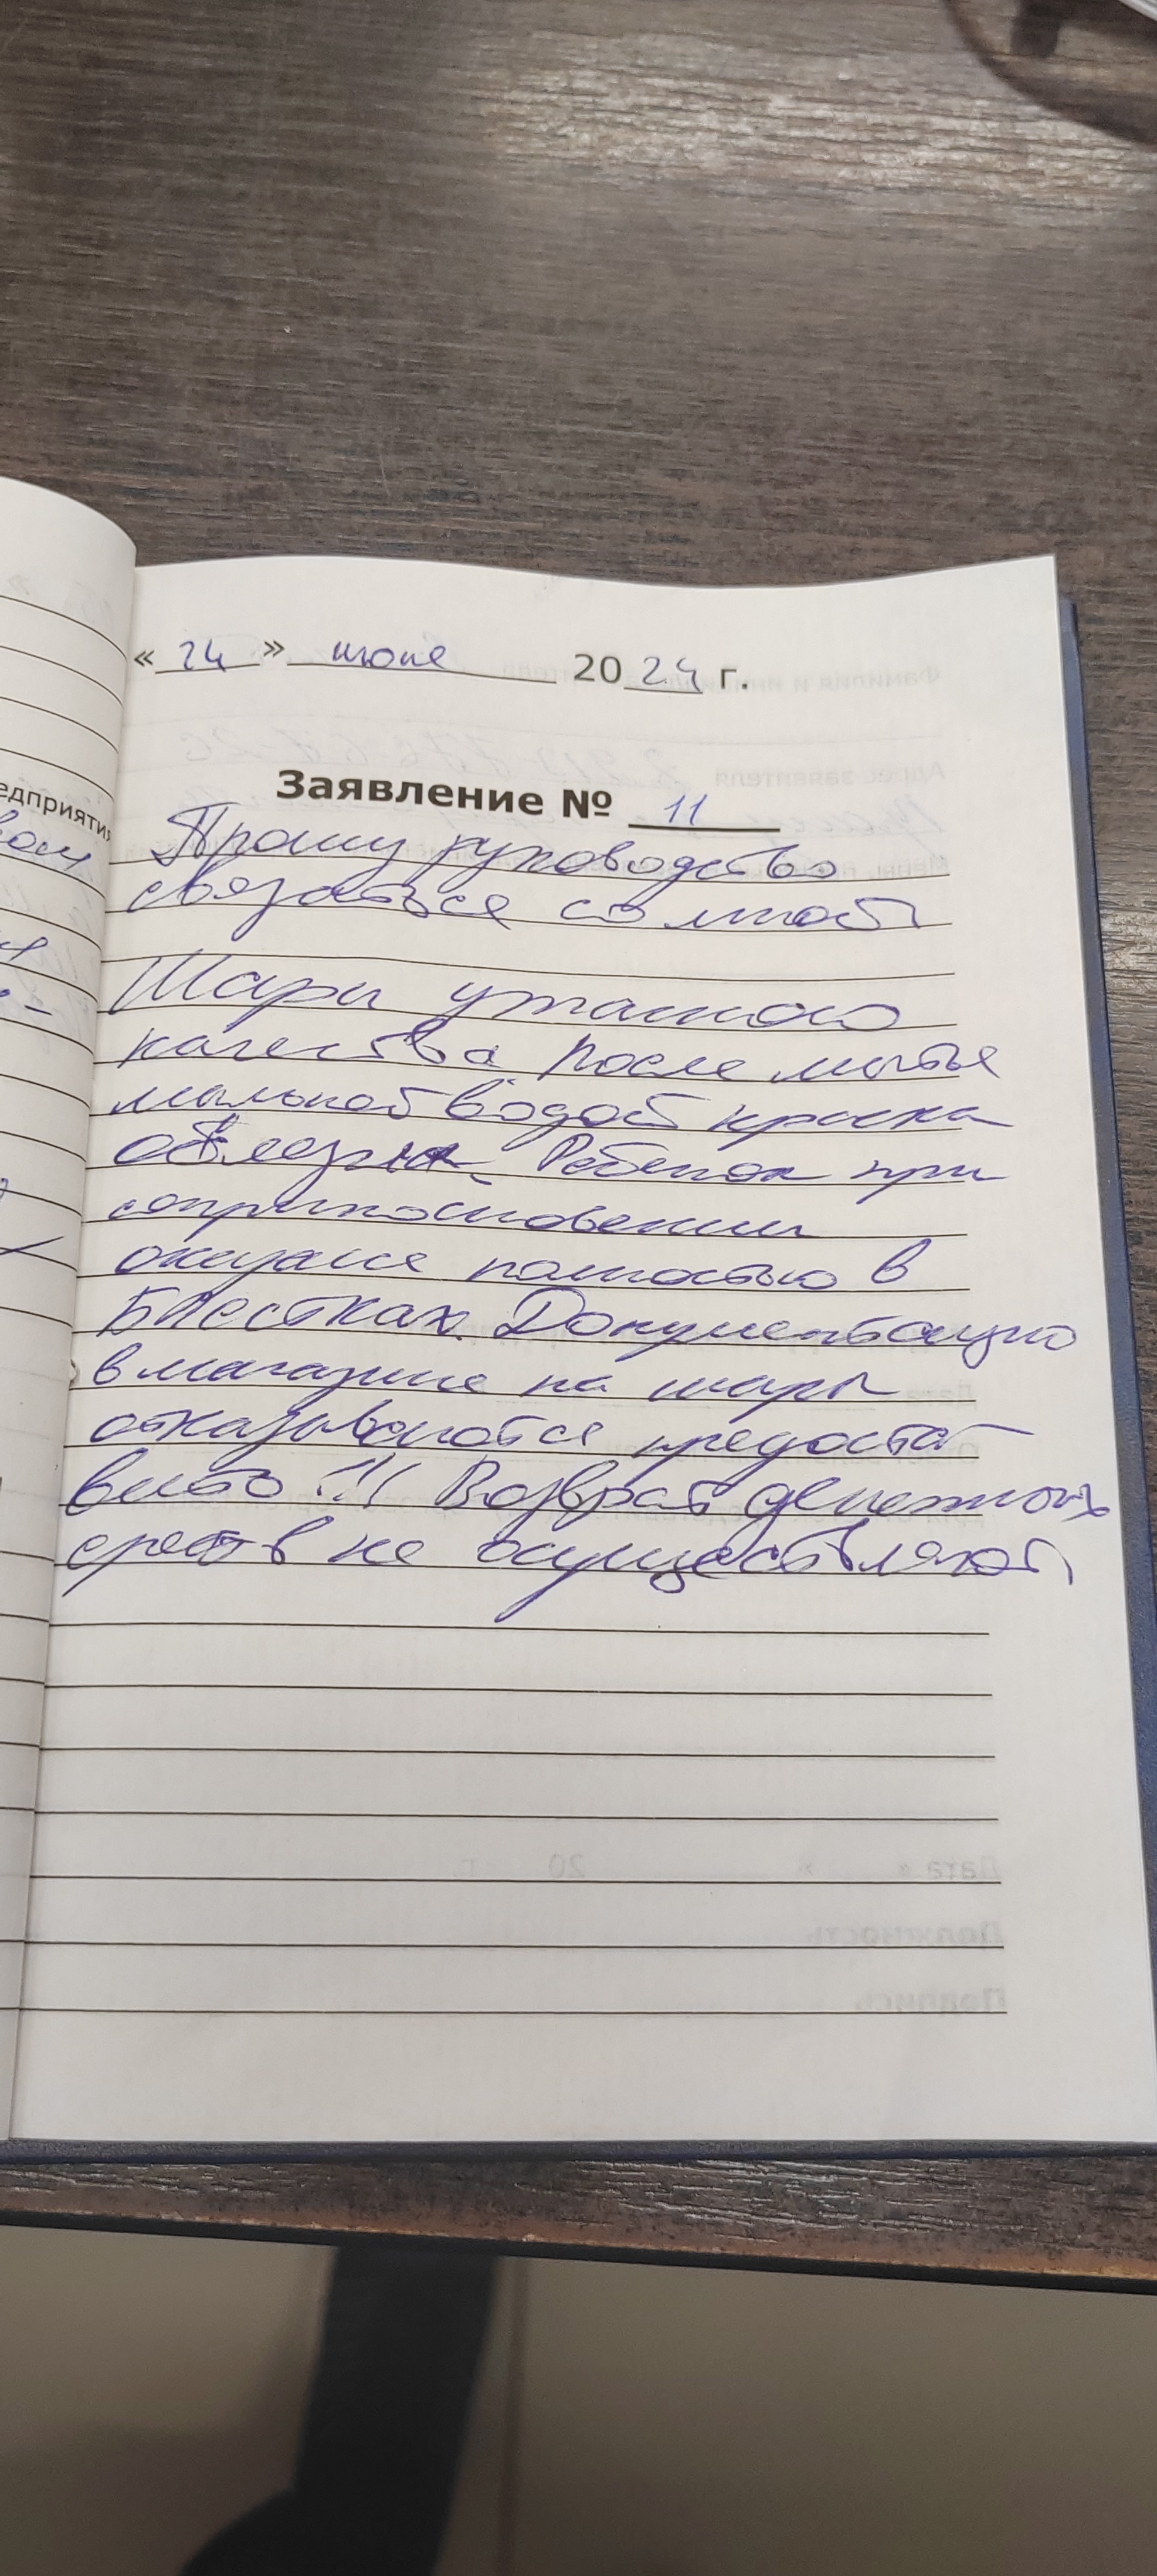 « 24 » июне 2024 г.
едприятия
Заявление № 11
Прошу руководство
связаться со мной
Шары ужасного
качества после мытья
мыльной водой краска
облезла Ребенок при
соприкосновении
оказался полностью в
Блестках. Документацию
в магазине на шары
отказываются предостав
вить !!! Возврат денежных
средств не осуществляют